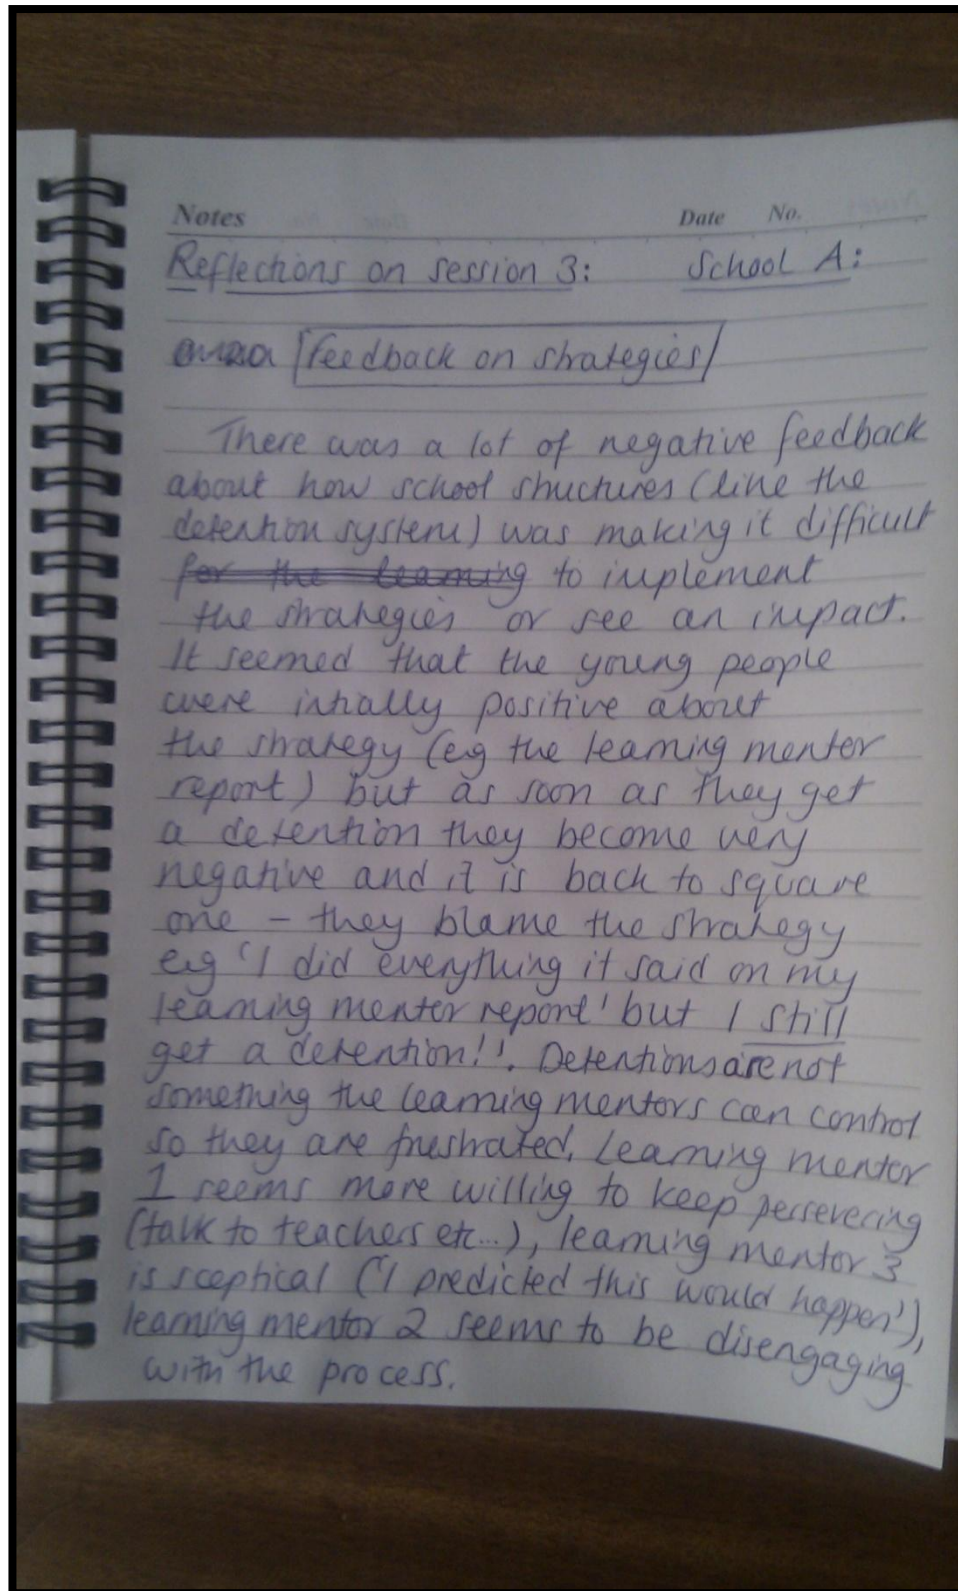 Notes Date No.
Reflections on session 3: School A:
feedback on strategies
There was a lot of negative feedback
about how school structures (like the
detention system) was making it difficult
for the learning to implement
the strategies or see an impact.
It seemed that the young people
were intially positive about
the strategy (eg the learning mentor
report) but as soon as they get
a detention they become very
negative and it is back to square
one - they blame the strategy
eg 'I did everything it said on my
learning mentor report' but I still
get a detention!!'. Detentions are not
something the learning mentors can control
so they are frustrated. Learning mentor
1 seems more willing to keep persevering
(talk to teachers etc...), learning mentor 3
is sceptical ('I predicted this would happen'),
learning mentor 2 seems to be disengaging
with the process.